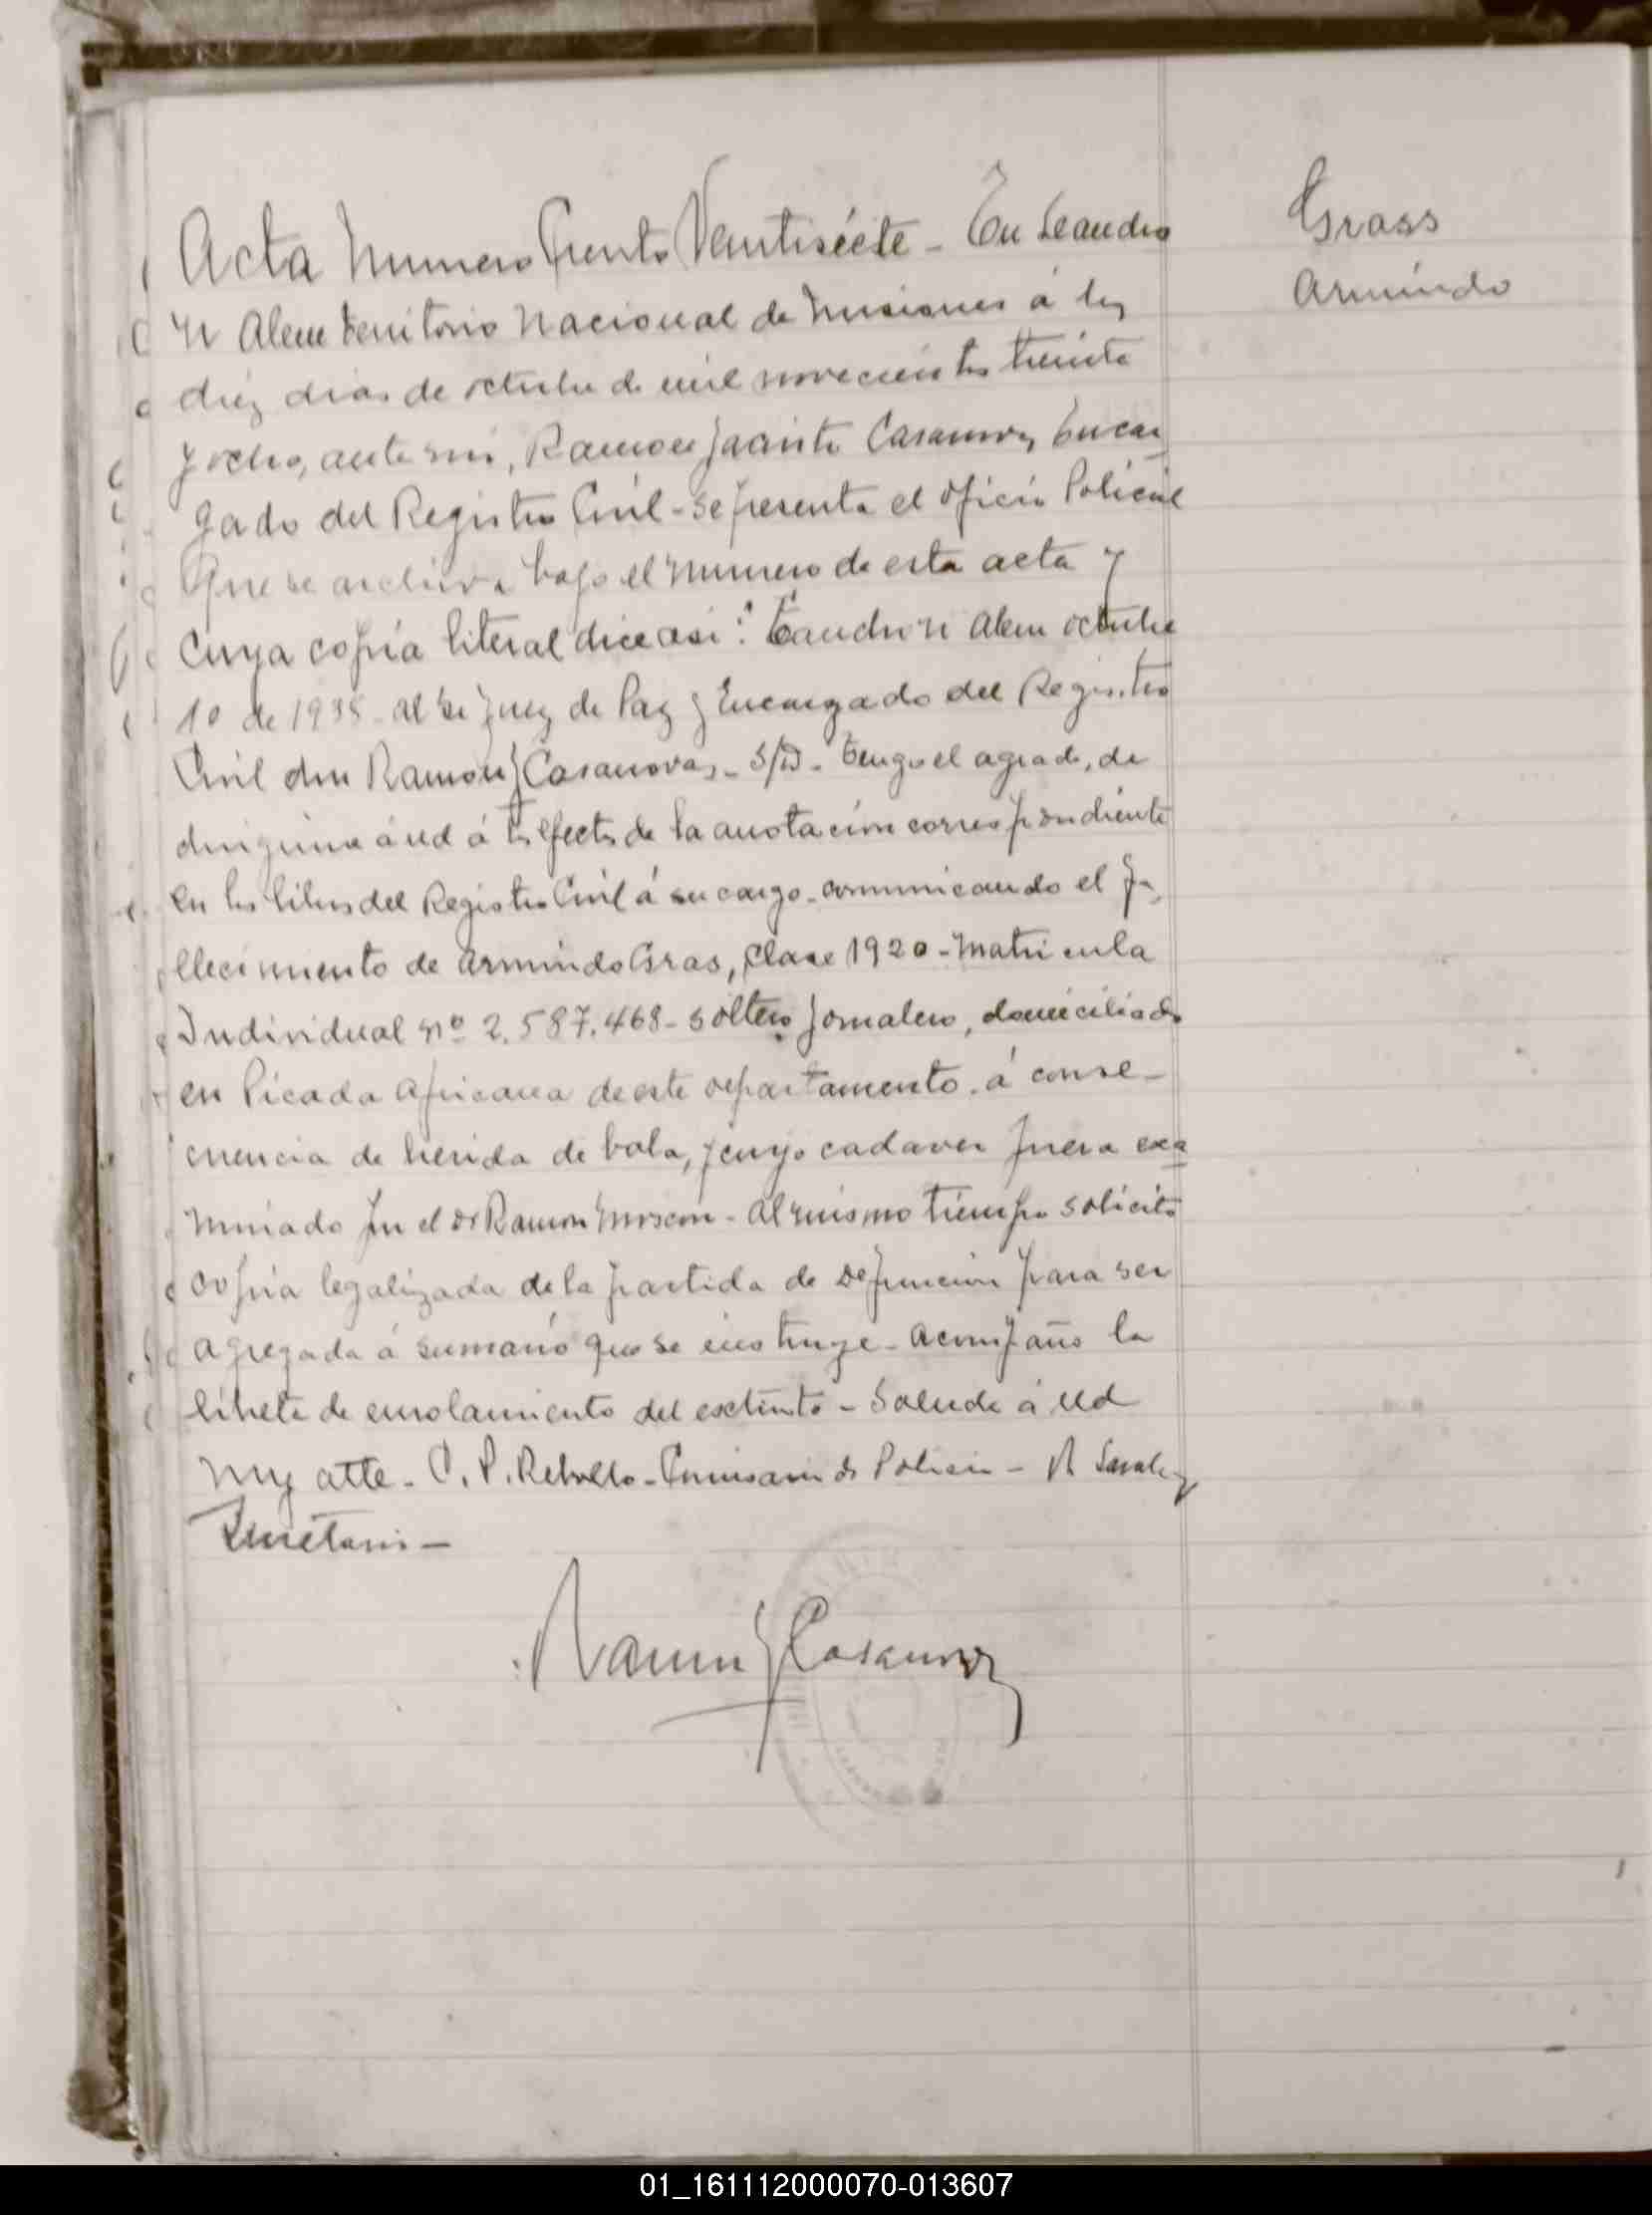 Acta Numero Ciento Veintisiete - En Leandro
Grass
Armindo
N Alem Territorio Nacional de Misiones á los
diez dias de octubre de mil novecientos treinta
y ocho, ante mi, Ramon Jacinto Casanovas, Encar
gado del Registro Civil - Se presenta el oficio Policial
que se archiva bajo el numero de esta acta y
cuya copia literal dice asi: "Leandro N Alem octubre
10 de 1938 - al Sr Juez de Paz y Encargado del Registro
Civil don Ramon J Casanovas - S/D - Tengo el agrado, de
dirigirme á ud á los efectos de la anotacion correspondiente
en los libros del Registro Civil á su cargo - comunicando el fa
llecimiento de Armindo Gras, Clase 1920 - Matricula
Individual nº 2.587.468 - soltero jornalero, domiciliado
en Picada Africana de este departamento. á conse-
cuencia de herida de bala, y cuyo cadaver fuera exa
minado por el Dr Ramon - al mismo tiempo solicito
copia legalizada de la partida de Defuncion para ser
agregada á sumario que se instruye - Acompaño la
libreta de enrolamiento del extinto - Saludo á Ud
muy atte - C. P. Rebollo - Comisario de Policia - R
Secretario -
Ramon J Casanovas
01_161112000070-013607